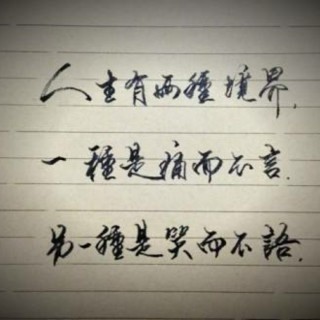 人生有兩種境界,
一種是痛而不言.
另一種是哭而不語.